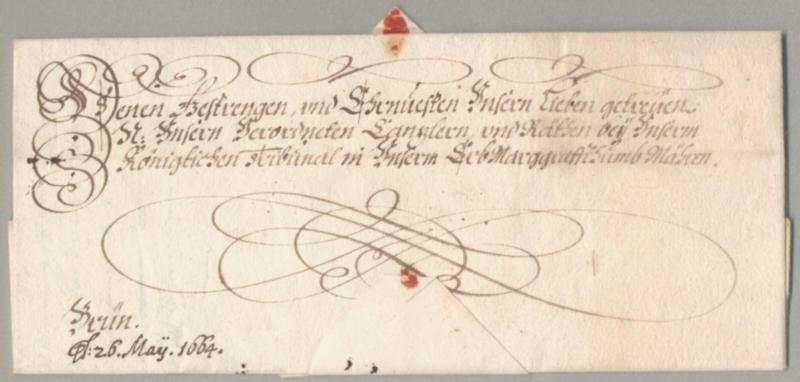 Denen Gestrengen, vnd Ehrnuesten Unsern Lieben getreüen
N: Unsern Verordneten Canzlern, vnd Räthen beÿ Unserm
Königlichen Tribunal in Unserm ErbMarggraffthumb Mähren.
Brün.
26. Maÿ. 1664.